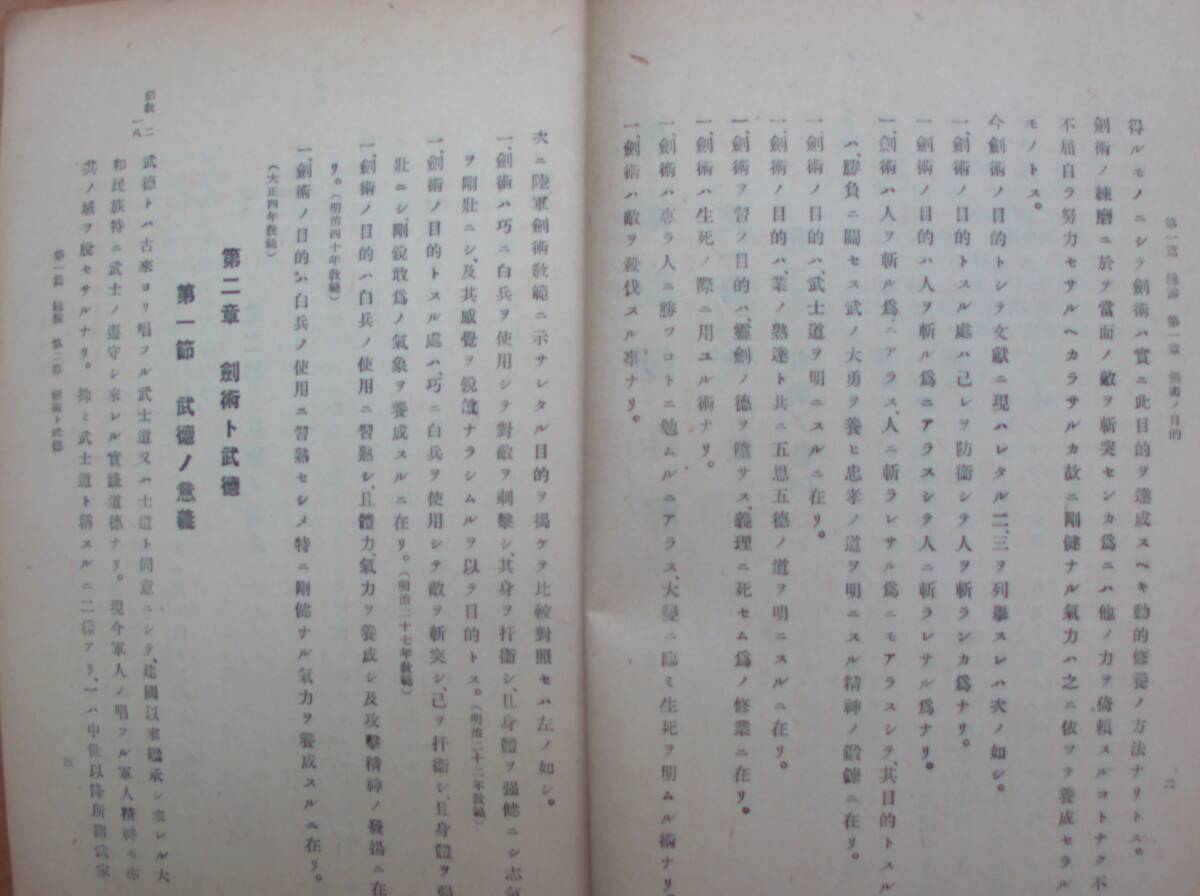 第一篇 總論 第一章 劍術ノ目的
二
得ルモノニシテ劍術ハ實ニ此目的ヲ達成スベキ動的修養ノ方法ナリトス。
劍術ノ練磨ニ於テ當面ノ敵ヲ斬突センカ爲ニハ他ノ力ヲ倚賴スルコトナク不
不屈自ラ努力セサルヘカラサルカ故ニ剛健ナル氣力ハ之ニ依ツテ養成セラル
モノトス。
今劍術ノ目的トシテ文獻ニ現ハレタル二、三ヲ列擧スレハ次ノ如シ。
一、劍術ノ目的トスル處ハ己レヲ防衞シテ人ヲ斬ランカ爲ナリ。
一、劍術ノ目的ハ人ヲ斬ル爲ニアラスシテ人ニ斬ラレサル爲ナリ。
一、劍術ハ人ヲ斬ル爲ニアラス、人ニ斬ラレサル爲ニモアラスシテ、其目的トスル
ハ、勝負ニ關セス武ノ大勇ヲ養ヒ忠孝ノ道ヲ明ニスル精神ノ鍛鍊ニ在リ。
一、劍術ノ目的ハ、武士道ヲ明ニスルニ在リ。
一、劍術ノ目的ハ、業ノ熟達ト共ニ五恩五德ノ道ヲ明ニスルニ在リ。
一、劍術ヲ習ノ目的ハ、靈劍ノ德ヲ墮サス、義理ニ死セム爲ノ修業ニ在リ。
一、劍術ハ生死ノ際ニ用ユル術ナリ。
一、劍術ハ專ラ人ニ勝ツコトニ勉ムルニアラス、大變ニ臨ミ生死ヲ明ムル術ナリ。
一、劍術ハ敵ヲ殺伐スル事ナリ。
次ニ陸軍劍術敎範ニ示サレタル目的ヲ揭ケテ比較對照セハ左ノ如シ。
一、劍術ハ巧ニ白兵ヲ使用シテ對敵ヲ刺擊シ、其身ヲ扞衞シ、且身體ヲ强健ニシ志氣
ヲ剛壯ニシ、及其感覺ヲ銳敏ナラシムルヲ以テ目的トス。(明治二十二年敎範)
一、劍術ノ目的トスル處ハ、巧ニ白兵ヲ使用シテ敵ヲ斬突シ、己ヲ扞衞シ、且身體ヲ强
壯ニシ、剛銳敢爲ノ氣象ヲ養成スルニ在リ。(明治二十七年敎範)
一、劍術ノ目的ハ白兵ノ使用ニ習熟シ、且體力、氣力ヲ養成シ及攻擊精神ノ發揚ニ在
リ。(明治四十年敎範)
一、劍術ノ目的ハ白兵ノ使用ニ習熟セシメ特ニ剛健ナル氣力ヲ養成スルニ在リ。
(大正四年敎範)
第二章 劍術ト武德
第一節 武德ノ意義
武德トハ古來ヨリ唱フル武士道又ハ士道ト同意ニシテ、建國以來繼承シ來レル大
和民族特ニ武士ノ遵守シ來レル實踐道德ナリ。現今軍人ノ唱フル軍人精神モ亦
其ノ域ヲ脫セサルナリ。抑ミ武士道ト稱スルニ二樣アリ、一ハ中世以降所謂武家
劍敎 二
一八
第一篇 總論 第二章 劍術ト武德
三